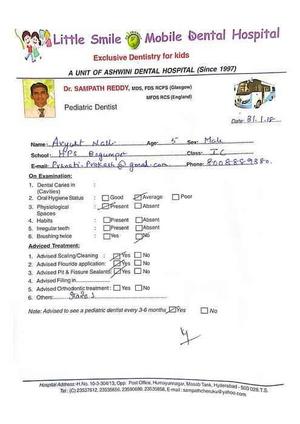 Little Smile Mobile Dental Hospital
Exclusive Dentistry for kids
A UNIT OF ASHWINI DENTAL HOSPITAL (Since 1997)
Dr. SAMPATH REDDY, MDS, FDS RCPS (Glasgow)
MFDS RCS (England)
Pediatric Dentist
Date: 31.1.18
Name: Age: 5 Sex: Male
School: HPS Begumpet Class: I C
E-mail: @gmail.com Phone:
On Examination:
1. Dental Caries in (Cavities)
2. Oral Hygiene Status : Good Average Poor
3. Physiological Spaces : Present Absent
4. Habits : Present Absent
5. Irregular teeth : Present Absent
6. Brushing twice : Yes No
Advised Treatment:
1. Advised Scaling/Cleaning : Yes No
2. Advised Flouride application: Yes No
3. Advised Pit & Fissure Sealants: Yes No
4. Advised Filling in
5. Advised Orthodontic treatment : Yes No
6. Others:
Note: Advised to see a pediatric dentist every 3-6 months Yes No
Hospital Address:-H.No. 10-3-304/13, Opp. Post Office, Humayunnagar, Masab Tank, Hyderabad - 500 028.T.S.
Tel: (C) 23537612, 23535656, 23590686, 23535858, E-mail: sampathcheruku@yahoo.com